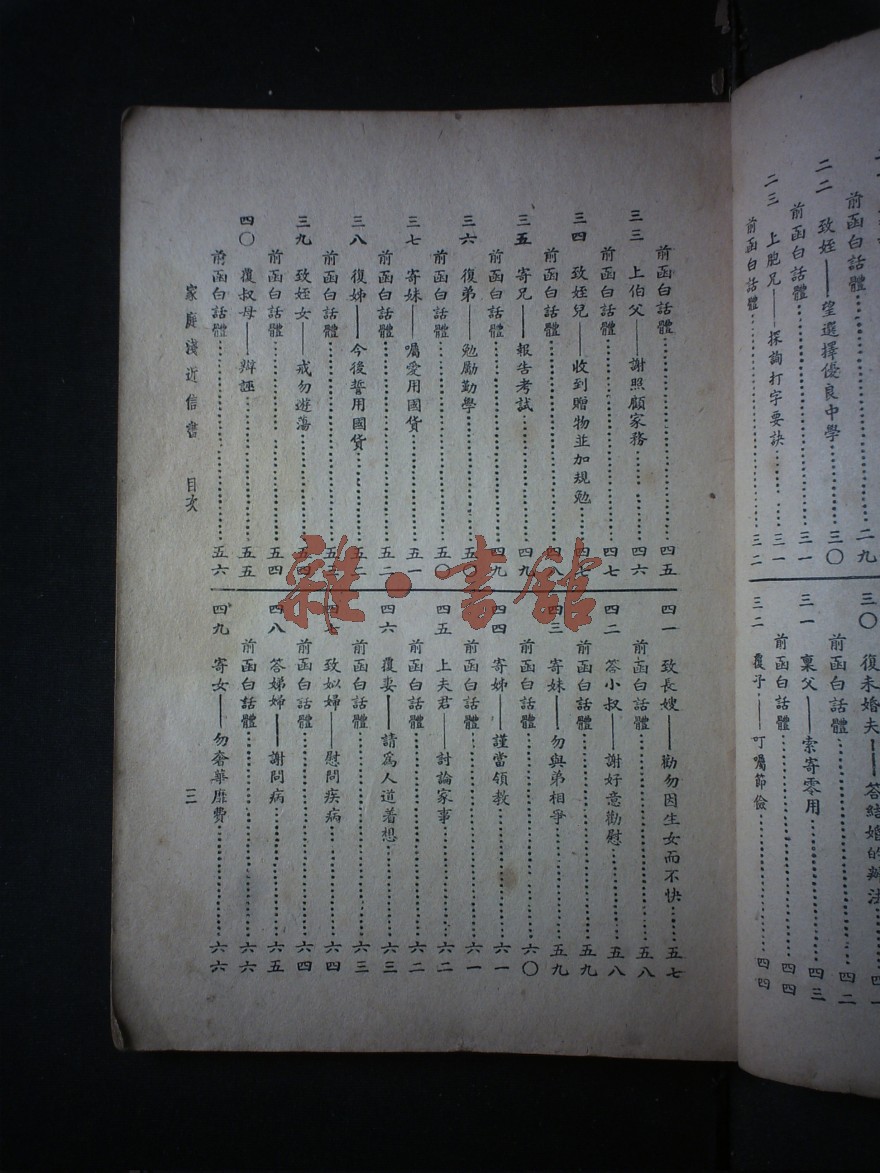 前函白話體……二九
二二 致姪——望選擇優良中學……三〇
前函白話體……三一
二三 上胞兄——探詢打字要訣……三一
前函白話體……三二
三〇 復未婚夫——答結婚的辦法……四一
前函白話體……四二
三一 稟父——索寄零用……四三
前函白話體……四四
三二 覆子——叮囑節儉……四四
前函白話體……四五
三三 上伯父——謝照顧家務……四六
前函白話體……四七
三四 致姪兒——收到贈物並加規勉……四七
前函白話體……四
三五 寄兄——報告考試……四九
前函白話體……四九
三六 復弟——勉勵勤學……五〇
前函白話體……五〇
三七 寄妹——囑愛用國貨……五一
前函白話體……五二
三八 復姊——今後誓用國貨……五二
前函白話體……五三
三九 致姪女——戒勿遊蕩……五四
前函白話體……五四
四〇 覆叔母——辯誣……五五
前函白話體……五六
四一 致長嫂——勸勿因生女而不快……五七
前函白話體……五八
四二 答小叔——謝好意勸慰……五八
前函白話體……五九
四三 寄妹——勿與弟相爭……五九
前函白話體……六〇
四四 寄姊——謹當領教……六一
前函白話體……六一
四五 上夫君——討論家事……六二
前函白話體……六二
四六 覆妻——請為人道着想……六三
前函白話體……六三
四七 致姒婦——慰問疾病……六四
前函白話體……六四
四八 答娣婦——謝問病……六五
前函白話體……六六
四九 寄女——勿奢華靡費……六六
家庭淺近信書 目次
三
雜·書館